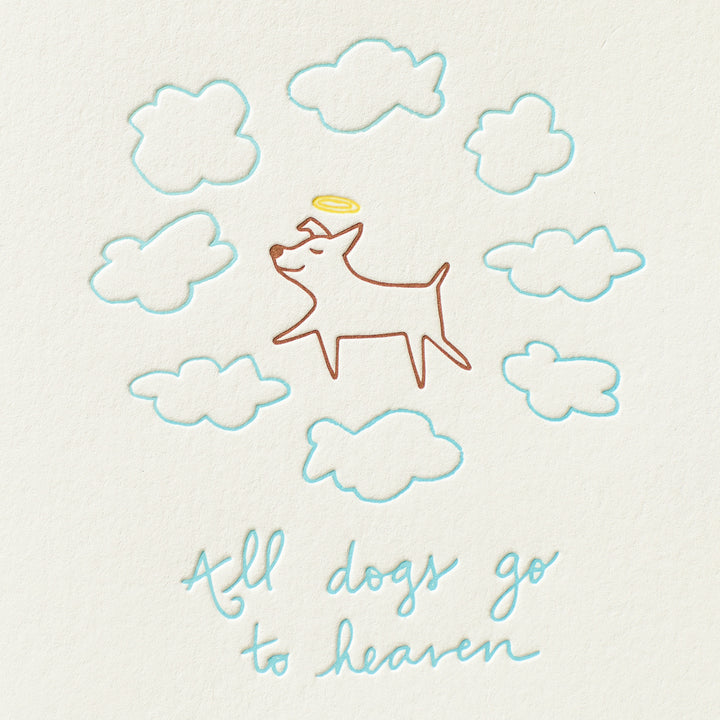 All dogs go
to heaven